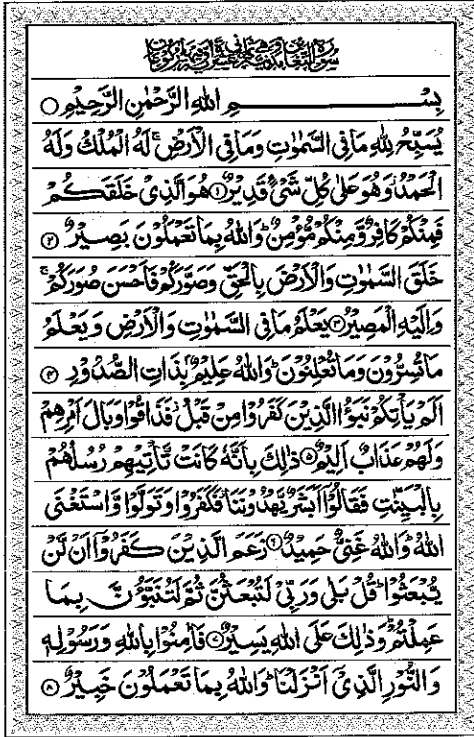 سورة التغابن مدنية وهي ثماني عشرة آية وفيها ركوعان
بِسْمِ اللهِ الرَّحْمٰنِ الرَّحِيْمِ ○
يُسَبِّحُ لِلّٰهِ مَا فِی السَّمٰوٰتِ وَمَا فِی الْاَرْضِ ۚ لَهُ الْمُلْكُ وَلَهُ
الْحَمْدُ وَهُوَ عَلٰی كُلِّ شَیْءٍ قَدِيْرٌ ۝۱ هُوَ الَّذِیْ خَلَقَكُمْ
فَمِنْكُمْ كَافِرٌ وَّمِنْكُمْ مُّؤْمِنٌ ؕ وَاللهُ بِمَا تَعْمَلُوْنَ بَصِيْرٌ ۝۲
خَلَقَ السَّمٰوٰتِ وَالْاَرْضَ بِالْحَقِّ وَصَوَّرَكُمْ فَاَحْسَنَ صُوَرَكُمْ ۚ
وَاِلَيْهِ الْمَصِيْرُ ۝۳ يَعْلَمُ مَا فِی السَّمٰوٰتِ وَالْاَرْضِ وَيَعْلَمُ
مَا تُسِرُّوْنَ وَمَا تُعْلِنُوْنَ ؕ وَاللهُ عَلِيْمٌۢ بِذَاتِ الصُّدُوْرِ ۝۴
اَلَمْ يَاْتِكُمْ نَبَؤُا الَّذِيْنَ كَفَرُوْا مِنْ قَبْلُ ؗ فَذَاقُوْا وَبَالَ اَمْرِهِمْ
وَلَهُمْ عَذَابٌ اَلِيْمٌ ۝۵ ذٰلِكَ بِاَنَّهٗ كَانَتْ تَّاْتِيْهِمْ رُسُلُهُمْ
بِالْبَيِّنٰتِ فَقَالُوْۤا اَبَشَرٌ يَّهْدُوْنَنَا ؗ فَكَفَرُوْا وَتَوَلَّوْا وَّاسْتَغْنَی
اللهُ ؕ وَاللهُ غَنِیٌّ حَمِيْدٌ ۝۶ زَعَمَ الَّذِيْنَ كَفَرُوْۤا اَنْ لَّنْ
يُّبْعَثُوْا ؕ قُلْ بَلٰی وَرَبِّیْ لَتُبْعَثُنَّ ثُمَّ لَتُنَبَّؤُنَّ بِمَا
عَمِلْتُمْ ؕ وَذٰلِكَ عَلَی اللهِ يَسِيْرٌ ۝۷ فَاٰمِنُوْا بِاللهِ وَرَسُوْلِهٖ
وَالنُّوْرِ الَّذِیْۤ اَنْزَلْنَا ؕ وَاللهُ بِمَا تَعْمَلُوْنَ خَبِيْرٌ ۝۸